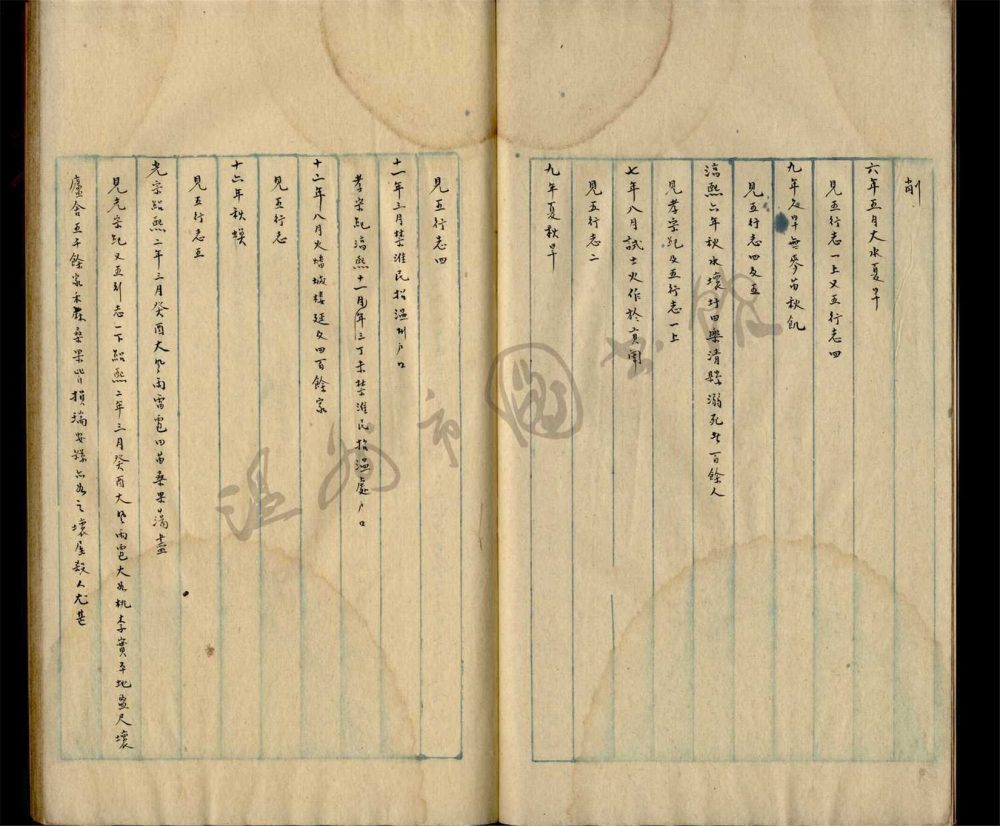 削
六年五月大水夏旱
見五行志一上又五行志四
九年夂旱無麥苗秋飢
見五行志四及五
淳熙六年秋水壞圩田樂清縣溺死者百餘人
見孝宗紀及五行志一上
七年八月試士火作於貢闈
見五行志二
九年夏秋旱
見五行志四
十一年三月禁淮民招溫州户口
孝宗紀淳熙十一年三丁未禁淮民招溫處户口
十二年八月火燔城樓延及四百餘家
見五行志
十六年秋螟
見五行志五
光宗紹熙二年三月癸酉大風雨雷雹田苗桑果蕩盡
見光宗紀又五行志一下紹熙二年三月癸酉大風雨雹大如桃李實平地盈尺壞
廬舍五千餘家禾麻桑果皆損瑞安縣亦如之壞屋殺人尤甚
溫州市圖書館